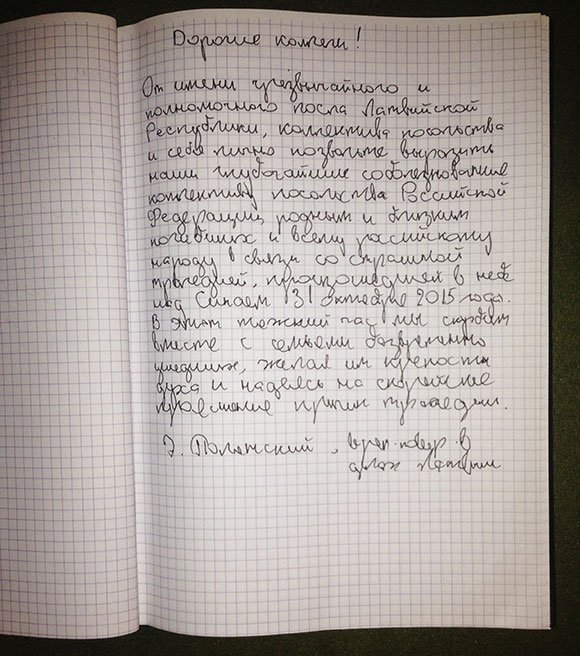 Дорогие коллеги!
От имени чрезвычайного и
полномочного посла Латвийской
Республики, коллектива посольства
и себя лично позвольте выразить
наши глубочайшие соболезнования
коллективу посольства Российской
Федерации, родным и близким
погибших и всему российскому
народу в связи со страшной
трагедией, произошедшей в небе
над Синаем 31 октября 2015 года.
В этот тяжкий час мы скорбим
вместе с семьями безвременно
ушедших, желая им крепости
духа и надеясь на скорейшее
прояснение причин трагедии.
Э. Полянский, врем. повер. в
делах Латвии